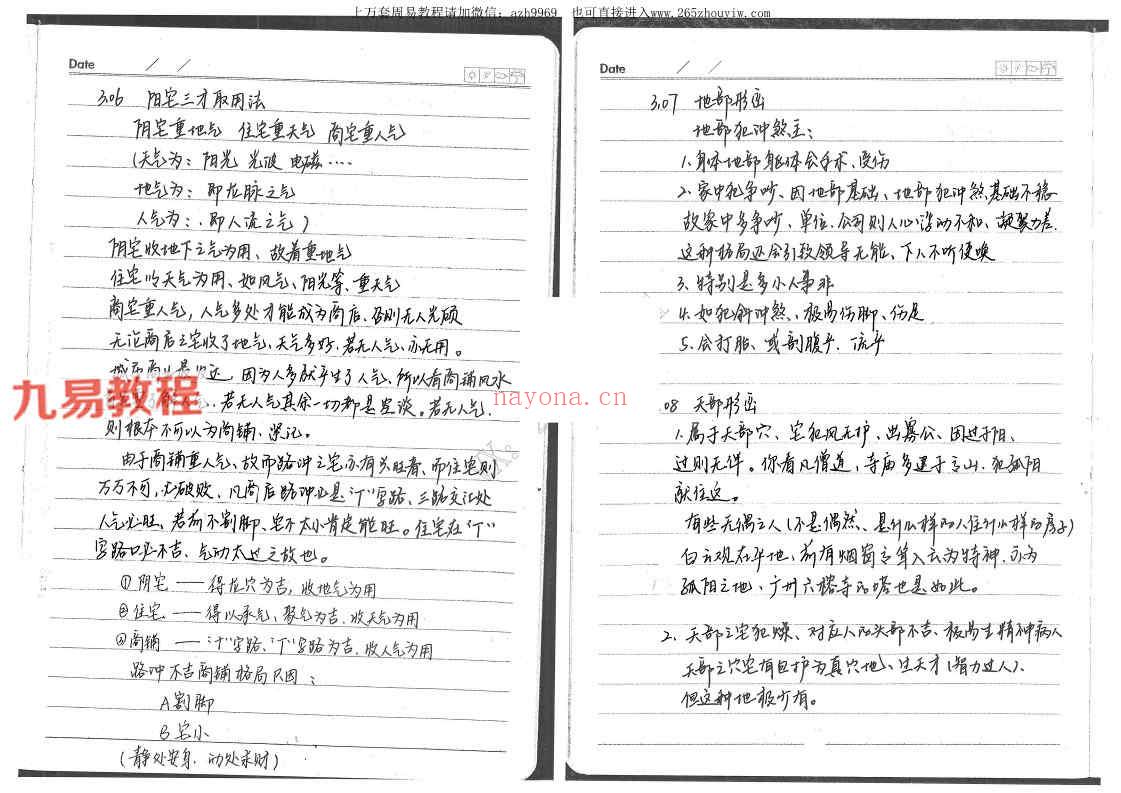 上万套周易教程请加微信：azh9969 也可直接进入www.265zhouyiw.com
Date / /
306 阳宅三才取用法
阴宅重地气 住宅重天气 商宅重人气
(天气为：阳光 光波 电磁····
地气为：即龙脉之气
人气为：即人流之气)
阴宅收地下之气为用、故着重地气
住宅以天气为用、如风气、阳光等、重天气
商宅重人气，人气多处才能成为商店、否则无人光顾
无论商店之宅收了地气、天气多好、若无人气、亦无用。
因为人多了人气、所以看商铺风水
若无人气其余一切都是空谈。若无人气、
则根本不可以为商铺、深记。
由于商铺重人气、故而路冲之宅亦有头旺者、而住宅则
万万不可，必破败、凡商店路冲必是"丁"字路、三路交汇处
人气必旺、若前不割脚、宅不太小肯定能旺。住宅在"丁"
字路口必不吉、气动太过之故也。
①阴宅——得龙穴为吉，收地气为用
②住宅——得以承气、聚气为吉、收天气为用
③商铺——"十"字路、"丁"字路为吉、收人气为用
路冲不吉商铺格局只因：
A割脚
B宅小
(静处安身、动处求财)
九易教程
nayona.cn
Date / /
3.07 地部形峦
地部犯冲煞主：
1. 身体地部身体会手术、受伤
2. 家中犯争吵、因地部基础、地部犯冲煞基础不稳
故家中多争吵、单位、公司则人心浮动不和、凝聚力差.
这种格局还会引致领导无能、下人不听使唤
3、特别是多小人事非
4. 如犯斜冲煞、极易伤脚、伤足
5. 会打胎、或剖腹手、流产
.08 天部形峦
1. 属于天部穴、宅犯风无护、出寡公、因过于阳、
过则无伴。你看凡僧道，寺庙多建于高山、犯孤阳
就住这。
有些无偶之人(不是偶然、是什么样的人住什么样的房子)
白云观在平地、前有烟囱高耸入云为特神、亦为
孤阳之地、广州六榕寺的塔也是如此。
2、天部之宅犯煞、对应人的头部不吉、极易生精神病人
天部之穴宅有包护为真穴地、生天才(智力过人)、
但这种地极少有。